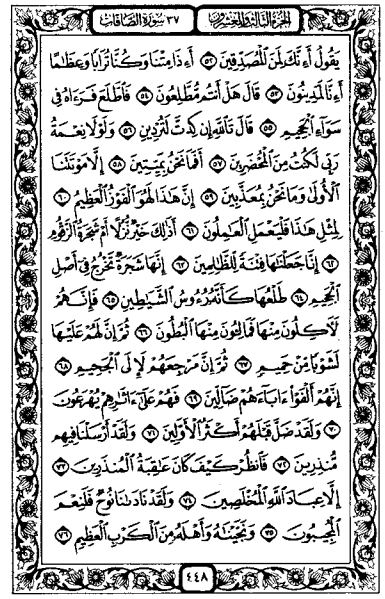 الجزء الثالث والعشرون ٣٧ سورة الصافات
يَقُولُ أَءِنَّكَ لَمِنَ الْمُصَدِّقِينَ ٥٢ أَءِذَا مِتْنَا وَكُنَّا تُرَابًا وَعِظَامًا
أَءِنَّا لَمَدِينُونَ ٥٣ قَالَ هَلْ أَنتُم مُّطَّلِعُونَ ٥٤ فَاطَّلَعَ فَرَءَاهُ فِي
سَوَاءِ الْجَحِيمِ ٥٥ قَالَ تَاللَّهِ إِن كِدتَّ لَتُرْدِينِ ٥٦ وَلَوْلَا نِعْمَةُ
رَبِّي لَكُنتُ مِنَ الْمُحْضَرِينَ ٥٧ أَفَمَا نَحْنُ بِمَيِّتِينَ ٥٨ إِلَّا مَوْتَتَنَا
الْأُولَىٰ وَمَا نَحْنُ بِمُعَذَّبِينَ ٥٩ إِنَّ هَٰذَا لَهُوَ الْفَوْزُ الْعَظِيمُ ٦٠
لِمِثْلِ هَٰذَا فَلْيَعْمَلِ الْعَامِلُونَ ٦١ أَذَٰلِكَ خَيْرٌ نُّزُلًا أَمْ شَجَرَةُ الزَّقُّومِ
٦٢ إِنَّا جَعَلْنَاهَا فِتْنَةً لِّلظَّالِمِينَ ٦٣ إِنَّهَا شَجَرَةٌ تَخْرُجُ فِي أَصْلِ
الْجَحِيمِ ٦٤ طَلْعُهَا كَأَنَّهُ رُءُوسُ الشَّيَاطِينِ ٦٥ فَإِنَّهُمْ
لَآكِلُونَ مِنْهَا فَمَالِئُونَ مِنْهَا الْبُطُونَ ٦٦ ثُمَّ إِنَّ لَهُمْ عَلَيْهَا
لَشَوْبًا مِّنْ حَمِيمٍ ٦٧ ثُمَّ إِنَّ مَرْجِعَهُمْ لَإِلَى الْجَحِيمِ ٦٨
إِنَّهُمْ أَلْفَوْا ءَابَاءَهُمْ ضَالِّينَ ٦٩ فَهُمْ عَلَىٰ ءَاثَارِهِمْ يُهْرَعُونَ
٧٠ وَلَقَدْ ضَلَّ قَبْلَهُمْ أَكْثَرُ الْأَوَّلِينَ ٧١ وَلَقَدْ أَرْسَلْنَا فِيهِم
مُّنذِرِينَ ٧٢ فَانظُرْ كَيْفَ كَانَ عَاقِبَةُ الْمُنذَرِينَ ٧٣
إِلَّا عِبَادَ اللَّهِ الْمُخْلَصِينَ ٧٤ وَلَقَدْ نَادَانَا نُوحٌ فَلَنِعْمَ
الْمُجِيبُونَ ٧٥ وَنَجَّيْنَاهُ وَأَهْلَهُ مِنَ الْكَرْبِ الْعَظِيمِ ٧٦
٤٤٨